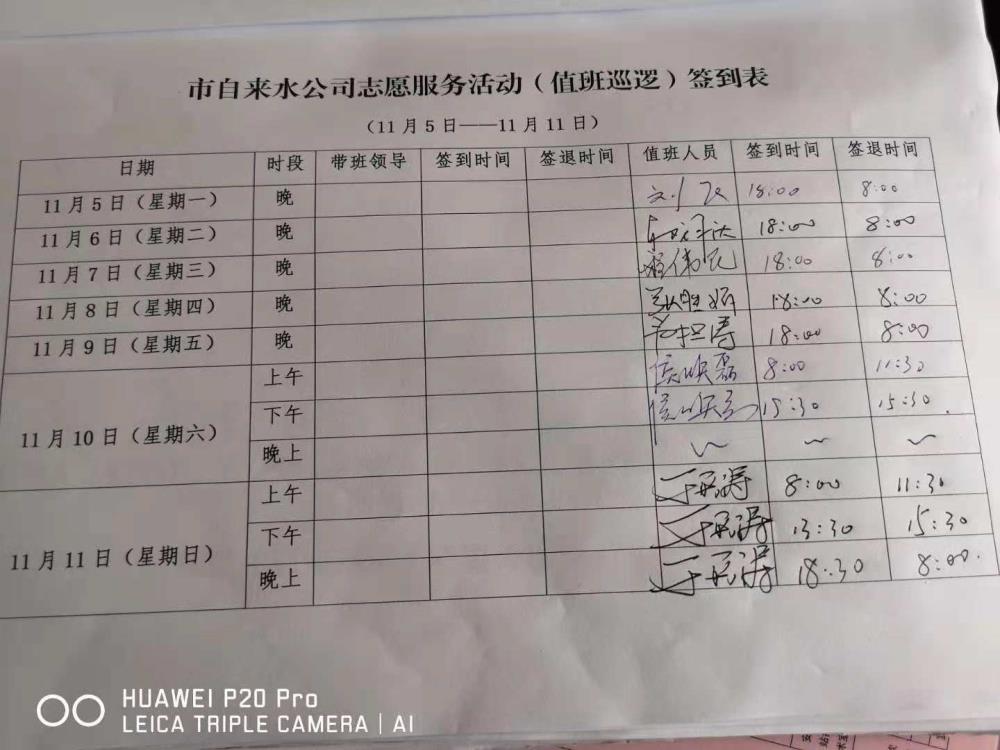 市自来水公司志愿服务活动（值班巡逻）签到表
（11月5日——11月11日）
日期 时段 带班领导 签到时间 签退时间 值班人员 签到时间 签退时间
11月5日（星期一） 晚 18:00 8:00
11月6日（星期二） 晚 18:00 8:00
11月7日（星期三） 晚 18:00 8:00
11月8日（星期四） 晚 18:00 8:00
11月9日（星期五） 晚 18:00 8:00
11月10日（星期六） 上午 8:00 11:30
下午 15:30
晚上
11月11日（星期日） 上午 8:00 11:30
下午 13:30 15:30
晚上 18:30 8:00
HUAWEI P20 Pro
LEICA TRIPLE CAMERA | AI